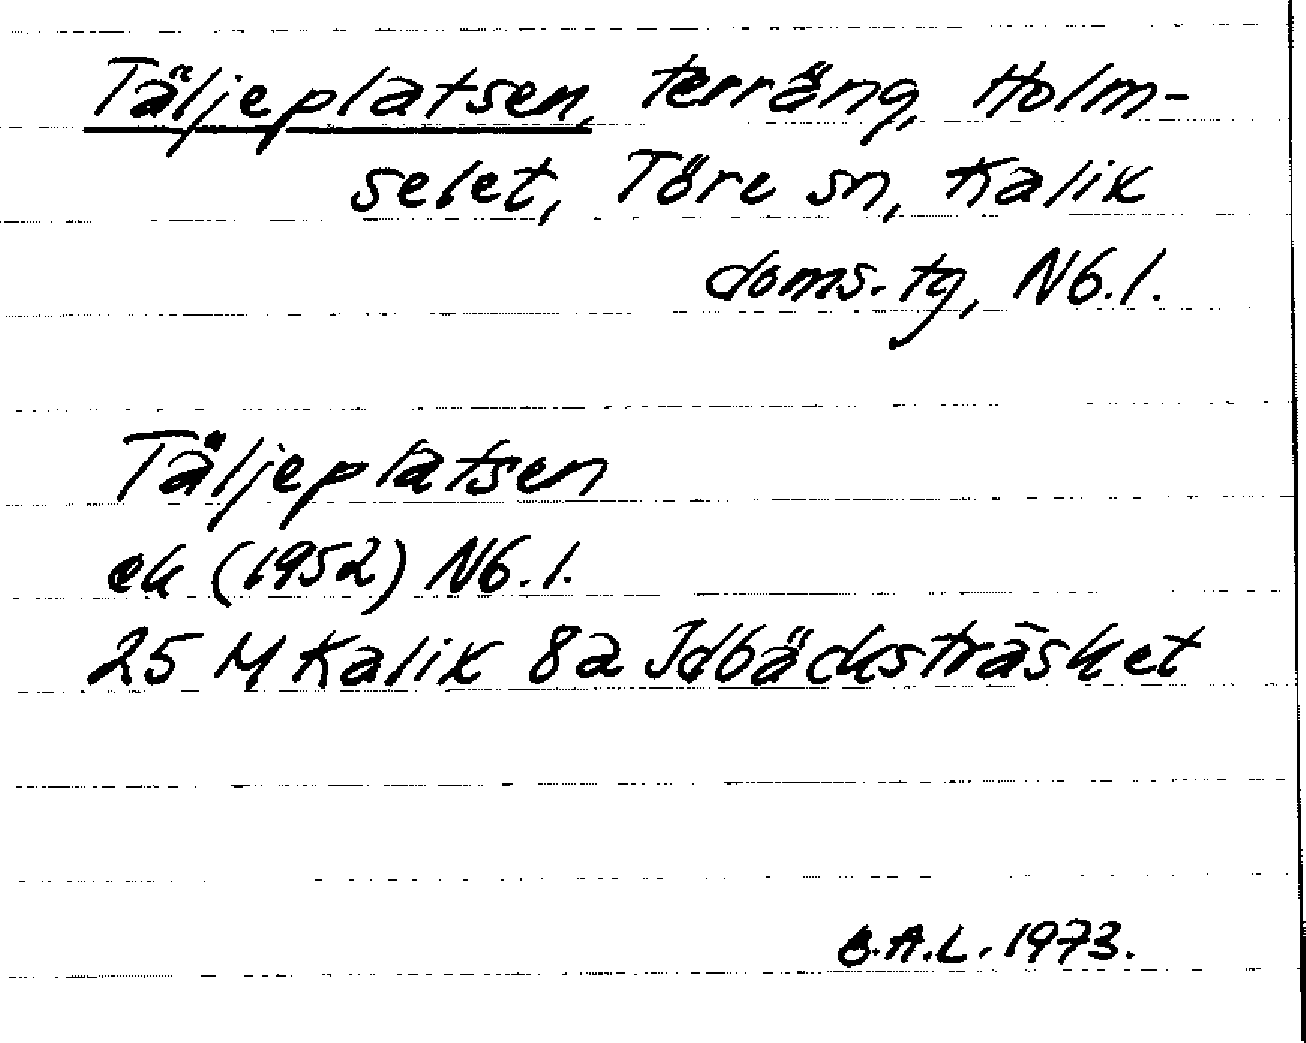 Täljeplatsen, terräng, Holm-
selet, Töre sn, Kalix
doms. tg, Nb.l.
Täljeplatsen
ek (1952) Nb.l.
25 M Kalix 8a Idbäcksträsket
B.A.L. 1973.